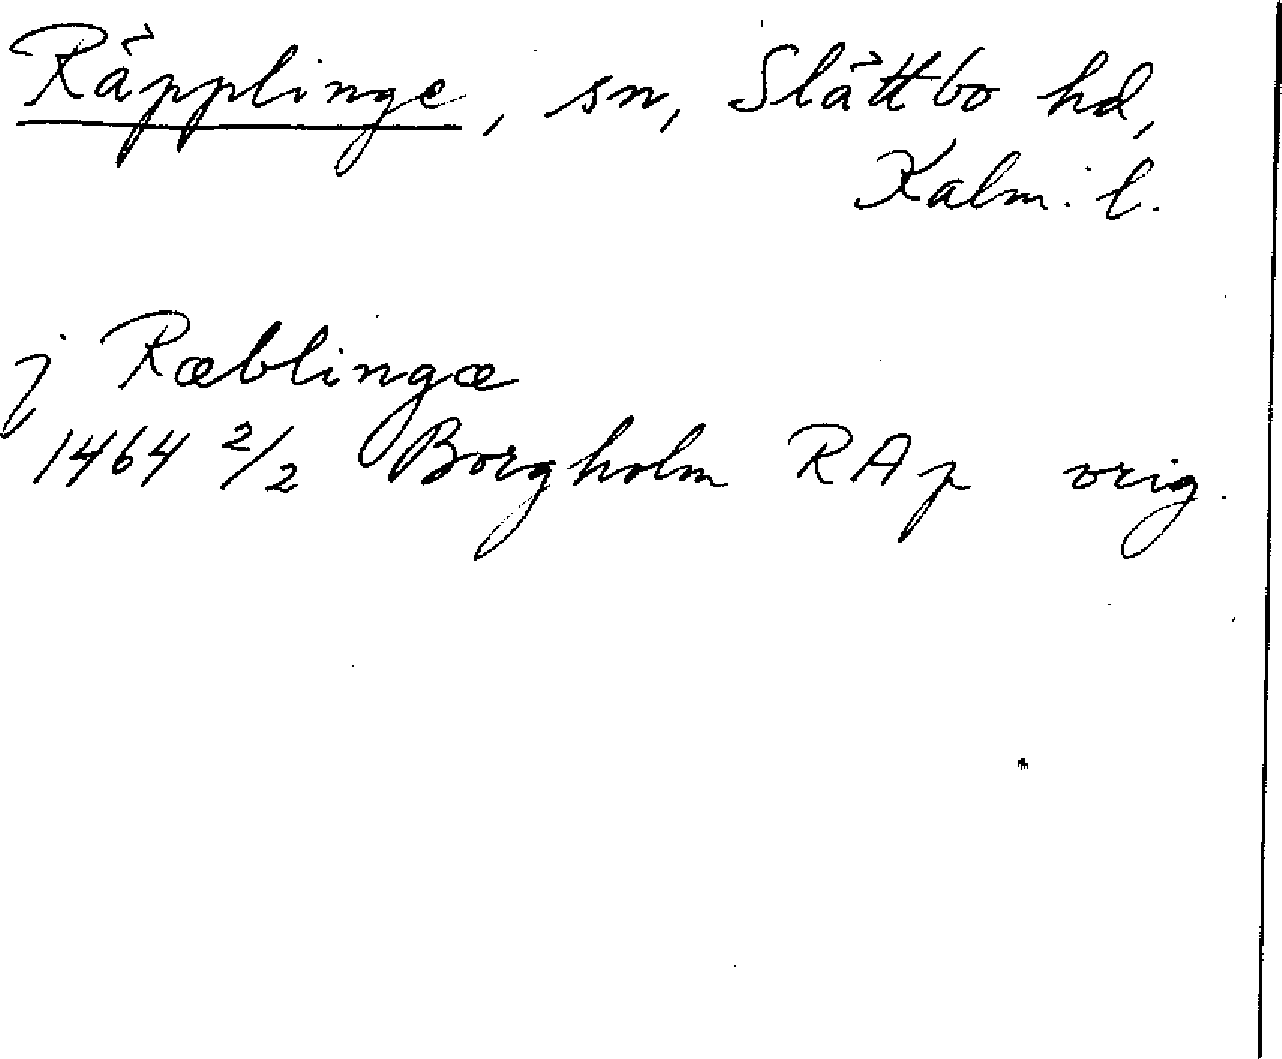 Räpplinge, sn, Slättbo hd,
Kalm. l.
j Ræblingæ
1464 2/2 Borgholm RAp orig.